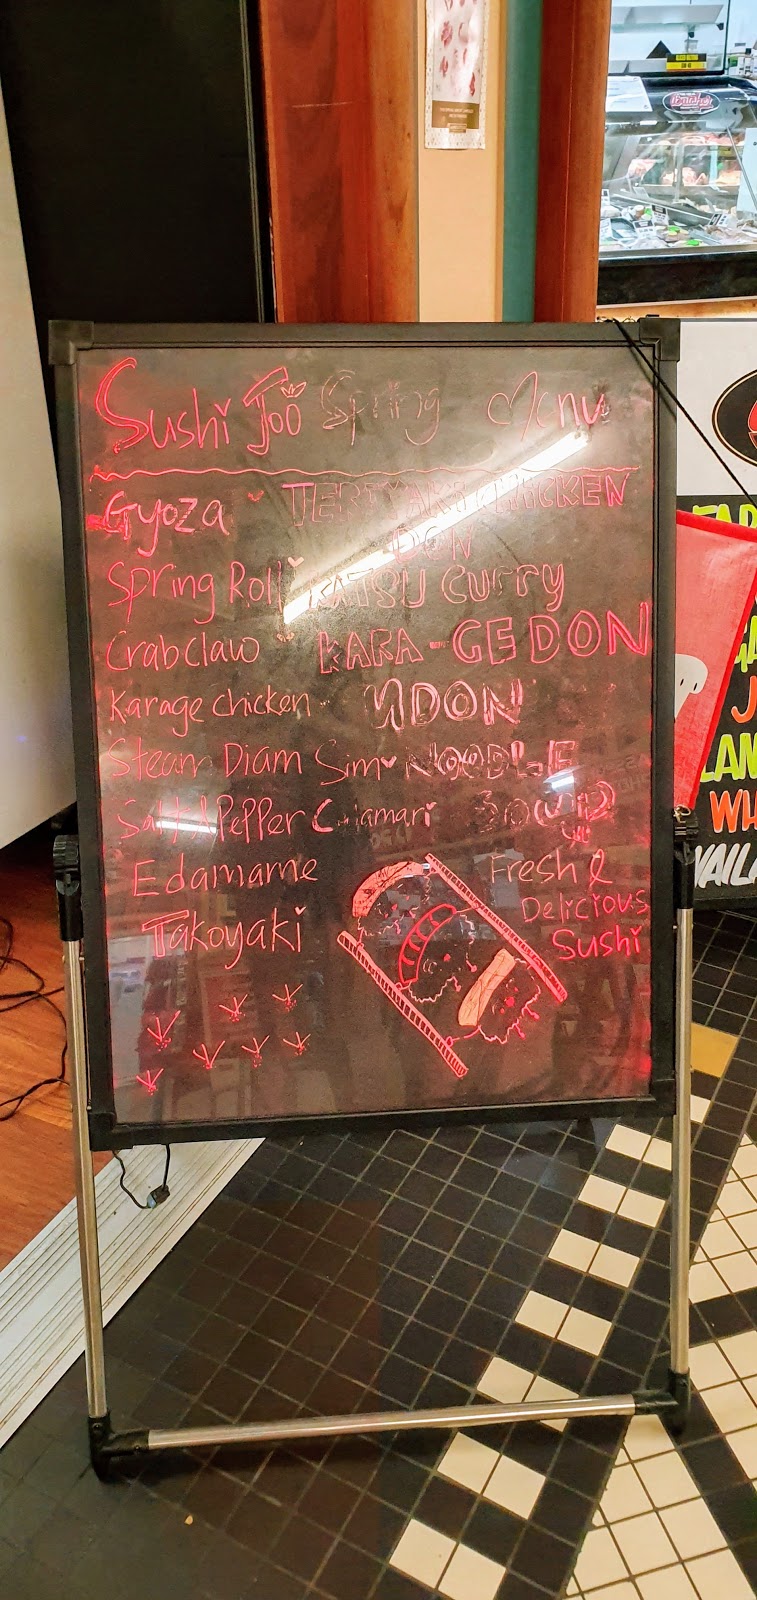 Sushi Joo Spring Menu
Gyoza TERIYAKI CHICKEN
DON
Spring Roll KATSU Curry
Crab claw KARA-GE DON
Karage chicken UDON
Steam Diam Sim NOODLE
Salt & Pepper Calamari SOUP
Edamame
Takoyaki
Fresh &
Delicious
Sushi